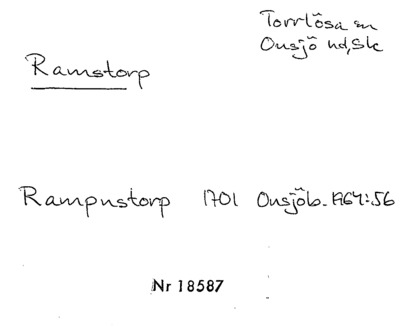 Torrlösa sn
Onsjö hd, Sk
Ramstorp
Rampnstorp 1701 Onsjöb. 1964:56
Nr 18587